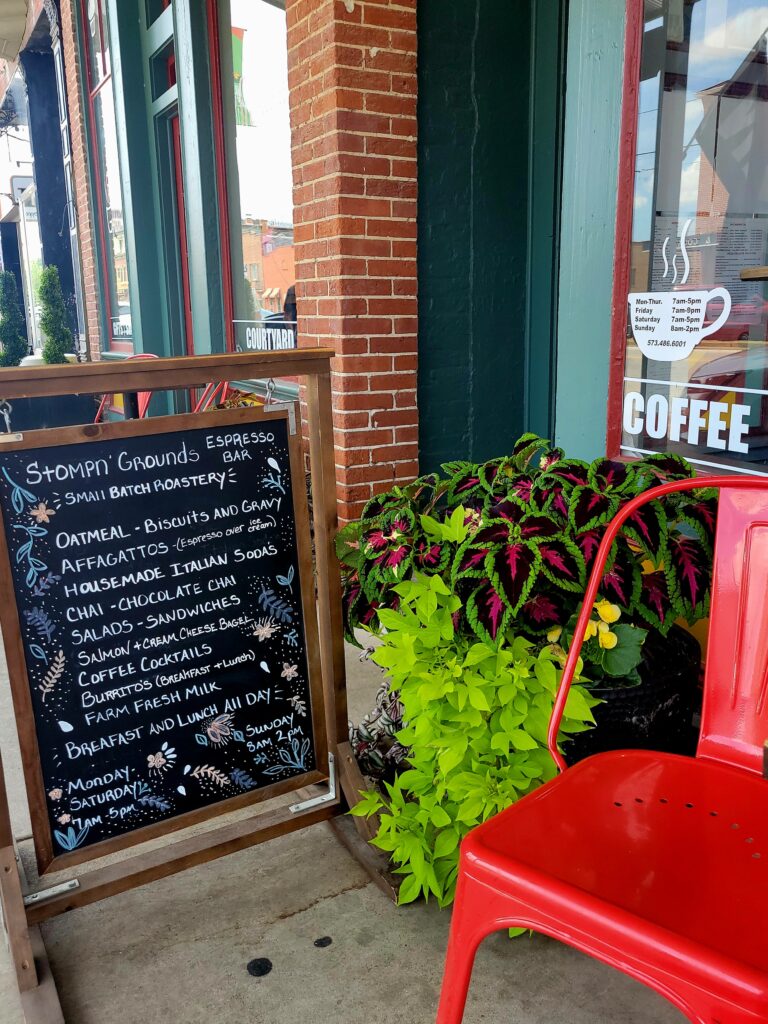 STOMPN' GROUNDS ESPRESSO BAR
SMALL BATCH ROASTERY
OATMEAL - BISCUITS AND GRAVY
AFFAGATTOS - (Espresso over ice cream)
HOUSEMADE ITALIAN SODAS
CHAI - CHOCOLATE CHAI
SALADS - SANDWICHES
SALMON + CREAM CHEESE BAGEL
COFFEE COCKTAILS
BURRITO'S (BREAKFAST + LUNCH)
FARM FRESH MILK
BREAFAST AND LUNCH ALL DAY
MONDAY
SATURDAY
7AM - 5PM
SUNDAY
8AM - 2PM
COURTYARD
Mon-Thur. 7am-5pm
Friday 7am-9pm
Saturday 7am-5pm
Sunday 8am-2pm
573.486.6001
COFFEE